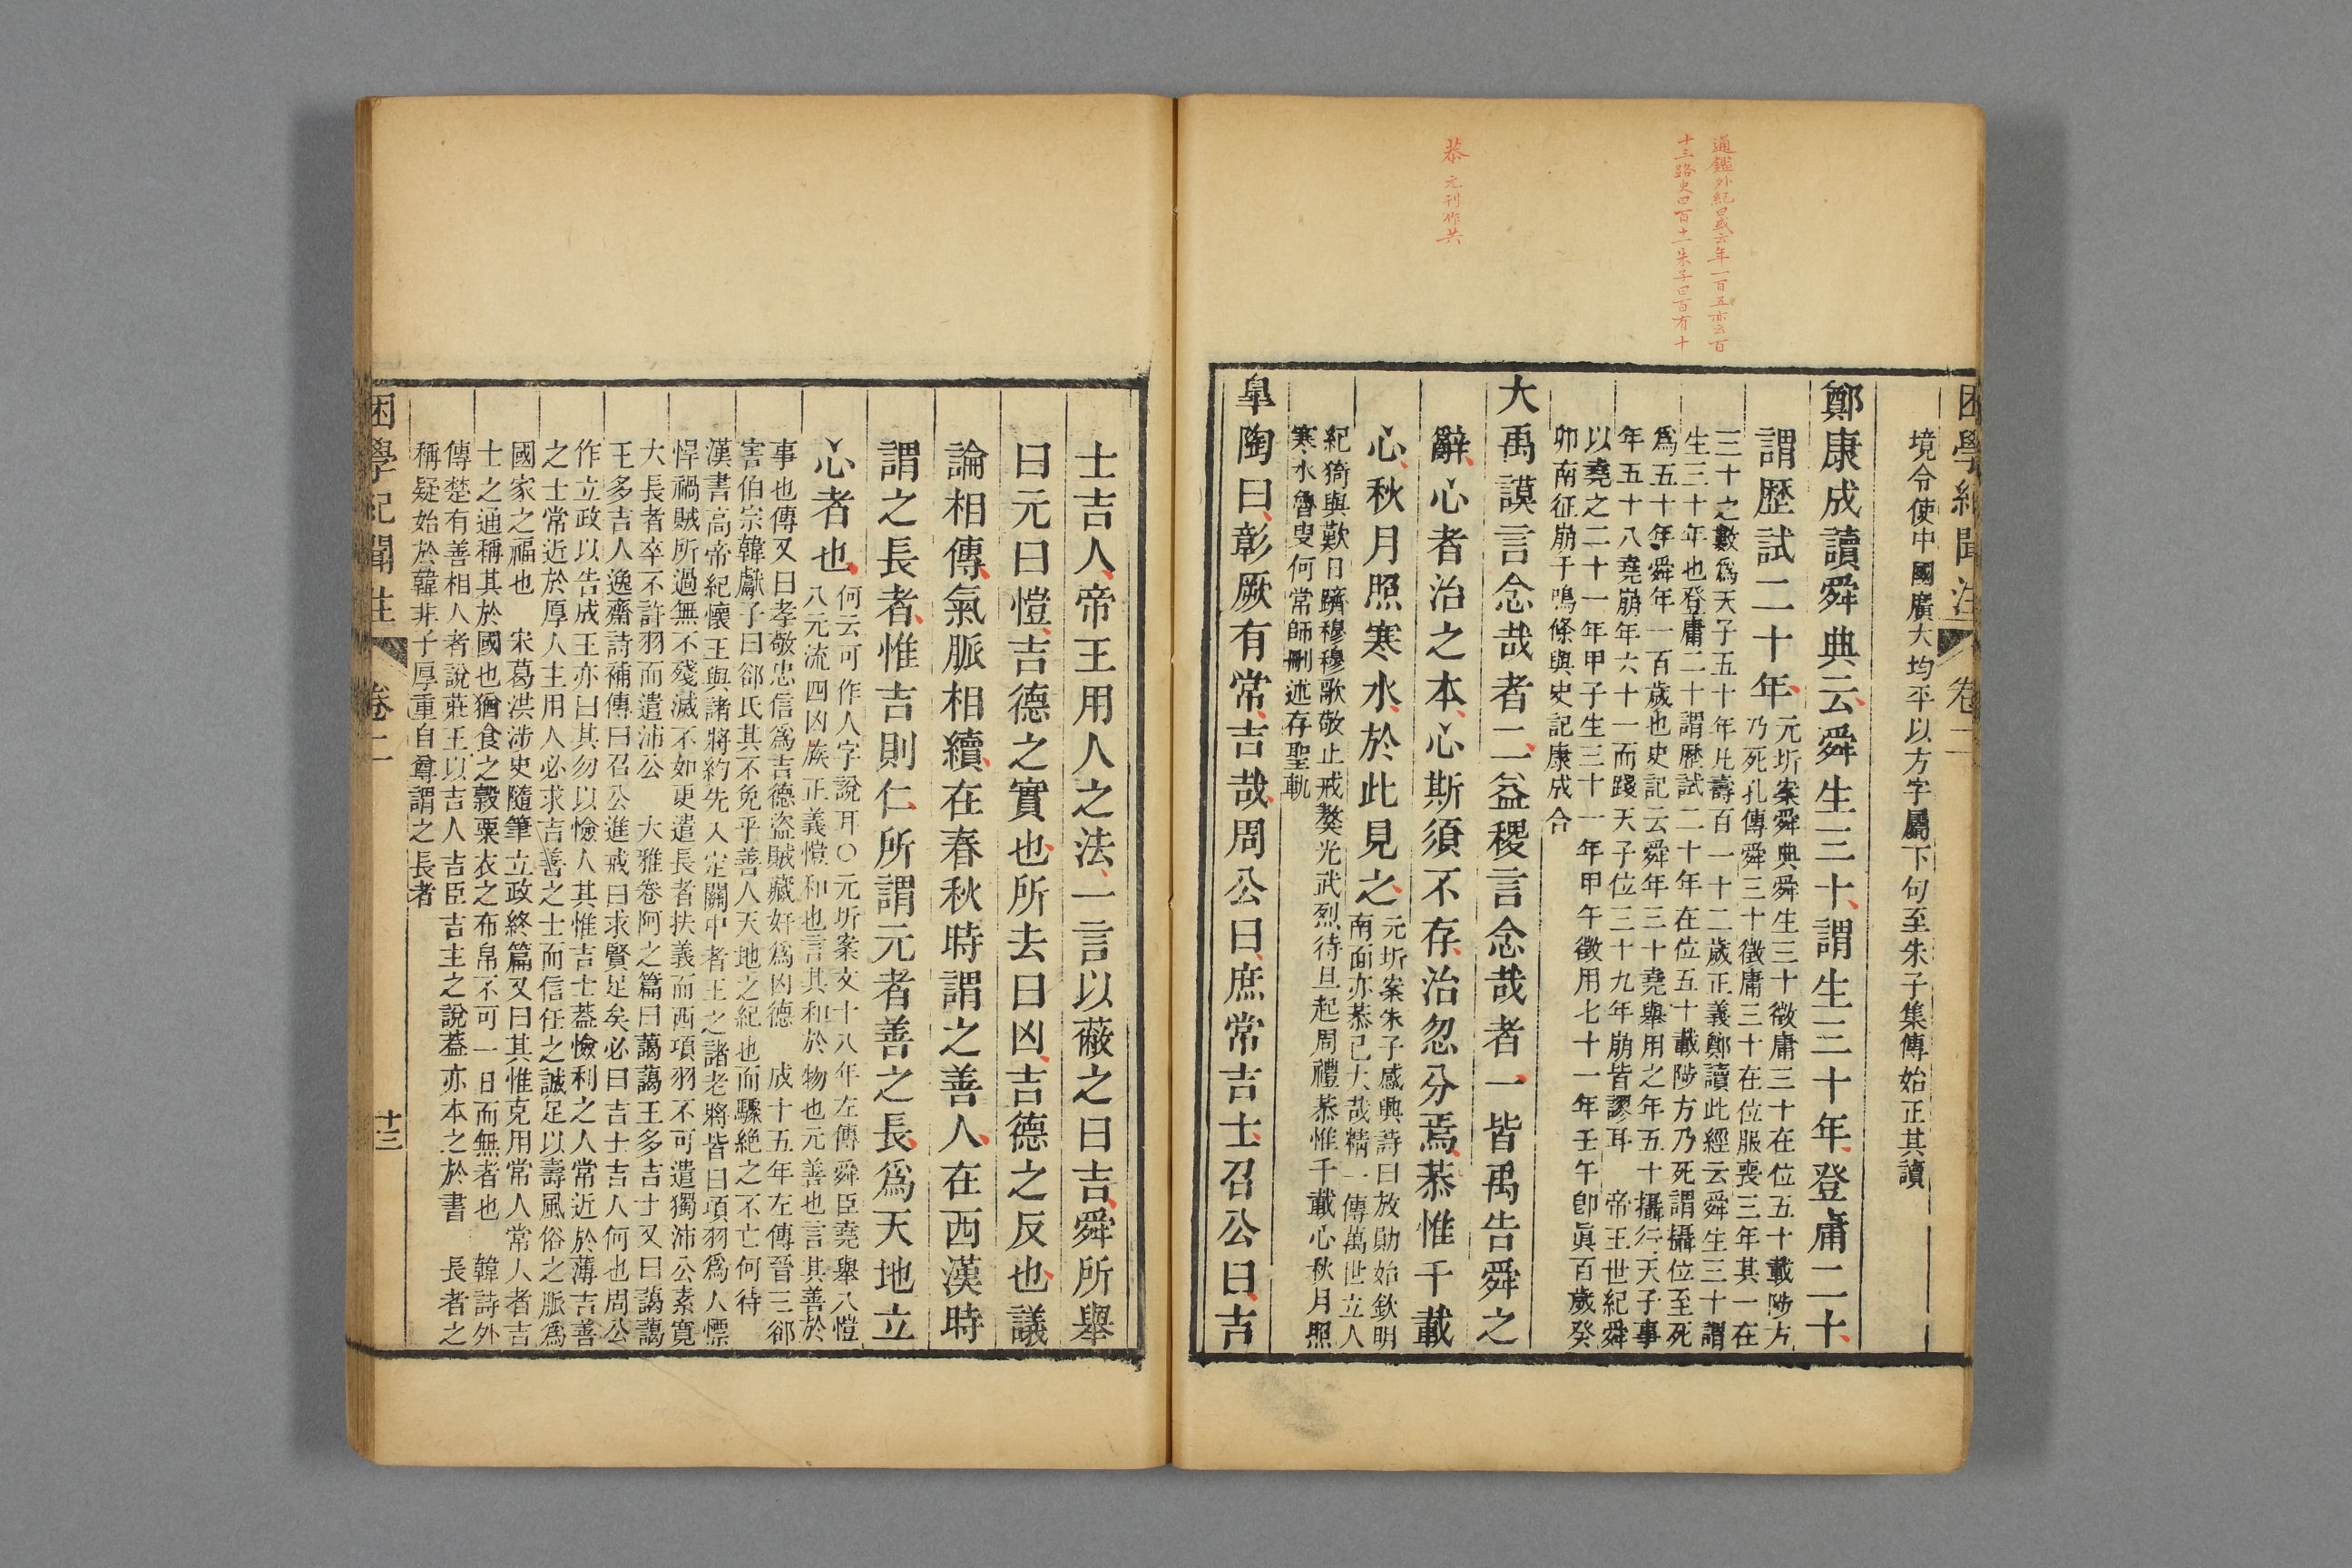 通鑑外紀曰或云年一百五亦云百
十三路史曰百十一朱子曰百有十
恭 元刊作共
困學紀聞注 卷二
境令使中國廣大均平以方字屬下句至朱子集傳始正其讀
鄭康成讀舜典云舜生三十謂生三十年登庸二十
謂歷試二十年
元圻案舜典舜生三十徵庸三十在位五十載陟方
乃死孔傳舜三十徵庸三十在位服喪三年其一在
三十之數爲天子五十年凡壽百一十二歲正義鄭讀此經云舜生三十謂
生三十年也登庸二十謂歷試二十年在位五十載陟方乃死謂攝位至死
爲五十年舜年一百歲也史記云舜年三十堯舉用之年五十攝行天子事
年五十八堯崩年六十一而踐天子位三十九年崩皆謬耳 帝王世紀舜
以堯之二十一年甲子生三十一年甲午徵用七十一年壬午卽眞百歲癸
卯南征崩于鳴條與史記康成合
大禹謨言念哉者二益稷言念哉者一皆禹告舜之
辭心者治之本心斯須不存治忽分焉恭惟千載
心秋月照寒水於此見之
元圻案朱子感興詩曰放勛始欽明
南面亦恭己大哉精一傳萬世立人
紀猗與歎日躋穆穆歌敬止戒獒光武烈待旦起周禮恭惟千載心秋月照
寒水魯叟何常師刪述存聖軌
皐陶曰彰厥有常吉哉周公曰庶常吉士召公曰吉
士吉人帝王用人之法一言以蔽之曰吉舜所舉
曰元曰愷吉德之實也所去曰凶吉德之反也議
論相傳氣脈相續在春秋時謂之善人在西漢時
謂之長者惟吉則仁所謂元者善之長爲天地立
心者也
何云可作人字說耳○元圻案文十八年左傳舜臣堯舉八愷
八元流四凶族正義愷和也言其和於物也元善也言其善於
事也傳又曰孝敬忠信爲吉德盜賊藏奸爲凶德 成十五年左傳晉三郤
害伯宗韓獻子曰郤氏其不免乎善人天地之紀也而驟絕之不亡何待
漢書高帝紀懷王與諸將約先入定關中者王之諸老將皆曰項羽爲人慓
悍禍賊所過無不殘滅不如更遣長者扶義而西項羽不可遣獨沛公素寬
大長者卒不許羽而遣沛公 大雅卷阿之篇曰藹藹王多吉士又曰藹藹
王多吉人逸齋詩補傳曰召公進戒曰求賢足矣必曰吉士吉人何也周公
作立政以告成王亦曰其勿以憸人其惟吉士蓋憸利之人常近於薄吉善
之士常近於厚人主用人必求吉善之士而信任之誠足以壽風俗之脈爲
國家之福也 宋葛洪涉史隨筆立政終篇又曰其惟克用常人常人者吉
士之通稱其於國也猶食之穀粟衣之布帛不可一日而無者也 韓詩外
傳楚有善相人者說莊王以吉人吉臣吉主之說蓋亦本之於書 長者之
稱疑始於韓非子厚重自尊謂之長者
困學紀聞注 卷二 十三